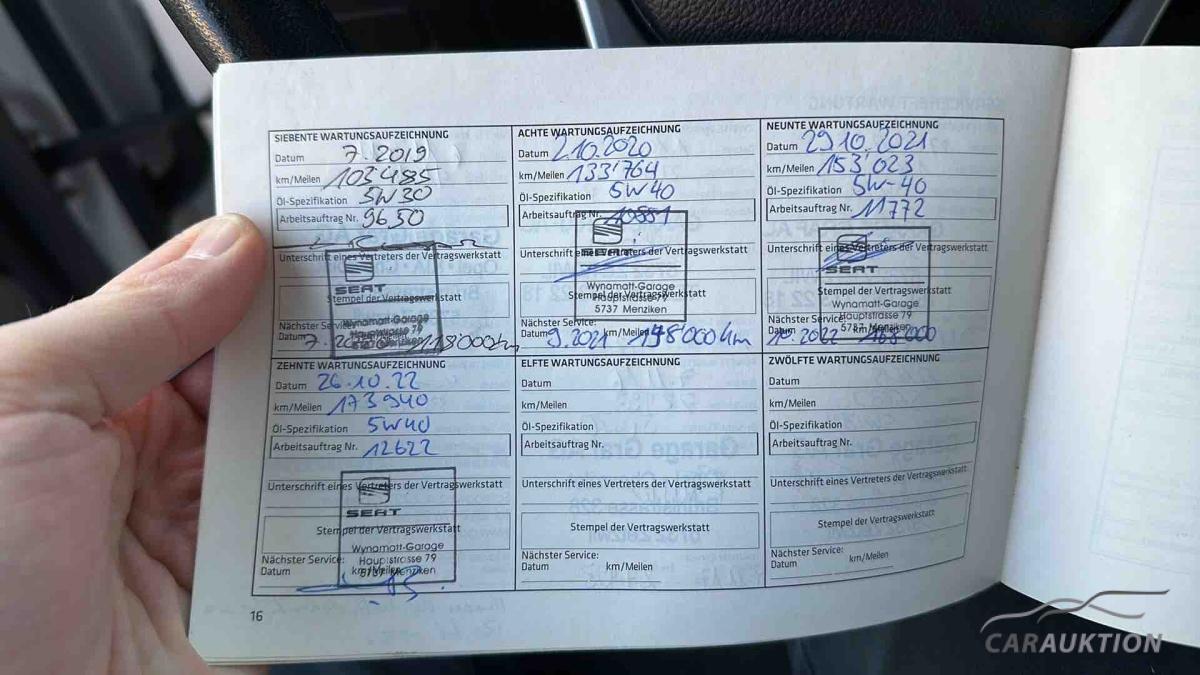 SIEBENTE WARTUNGSAUFZEICHNUNG
Datum 7.2019
km/Meilen 103485
Öl-Spezifikation 5W30
Arbeitsauftrag Nr. 9650
Unterschrift eines Vertreters der Vertragswerkstatt
SEAT
Stempel der Vertragswerkstatt
Wynamatt-Garage
Hauptstrasse 79
Nächster Service:
Datum km/Meilen 118'000 km
ACHTE WARTUNGSAUFZEICHNUNG
Datum 2.10.2020
km/Meilen 133'764
Öl-Spezifikation 5W40
Arbeitsauftrag Nr. 10851
Unterschrift eines Vertreters der Vertragswerkstatt
SEAT
Stempel der Vertragswerkstatt
Wynamatt-Garage
Hauptstrasse 79
5737 Menziken
Nächster Service:
Datum 9.2021 km/Meilen
NEUNTE WARTUNGSAUFZEICHNUNG
Datum 29.10.2021
km/Meilen 153'023
Öl-Spezifikation 5W-40
Arbeitsauftrag Nr. 11772
Unterschrift eines Vertreters der Vertragswerkstatt
SEAT
Stempel der Vertragswerkstatt
Wynamatt-Garage
Hauptstrasse 79
5737 Menziken
Nächster Service:
Datum 10.2022 168'000
ZEHNTE WARTUNGSAUFZEICHNUNG
Datum 26.10.22
km/Meilen 173940
Öl-Spezifikation 5W40
Arbeitsauftrag Nr. 12622
Unterschrift eines Vertreters der Vertragswerkstatt
SEAT
Stempel der Vertragswerkstatt
Wynamatt-Garage
Nächster Service: Hauptstrasse 79
Datum km/Meilen 5737 Menziken
ELFTE WARTUNGSAUFZEICHNUNG
Datum
km/Meilen
Öl-Spezifikation
Arbeitsauftrag Nr.
Unterschrift eines Vertreters der Vertragswerkstatt
Stempel der Vertragswerkstatt
Nächster Service:
Datum km/Meilen
ZWÖLFTE WARTUNGSAUFZEICHNUNG
Datum
km/Meilen
Öl-Spezifikation
Arbeitsauftrag Nr.
Unterschrift eines Vertreters der Vertragswerkstatt
Stempel der Vertragswerkstatt
Nächster Service:
Datum km/Meilen
16
CARAUKTION